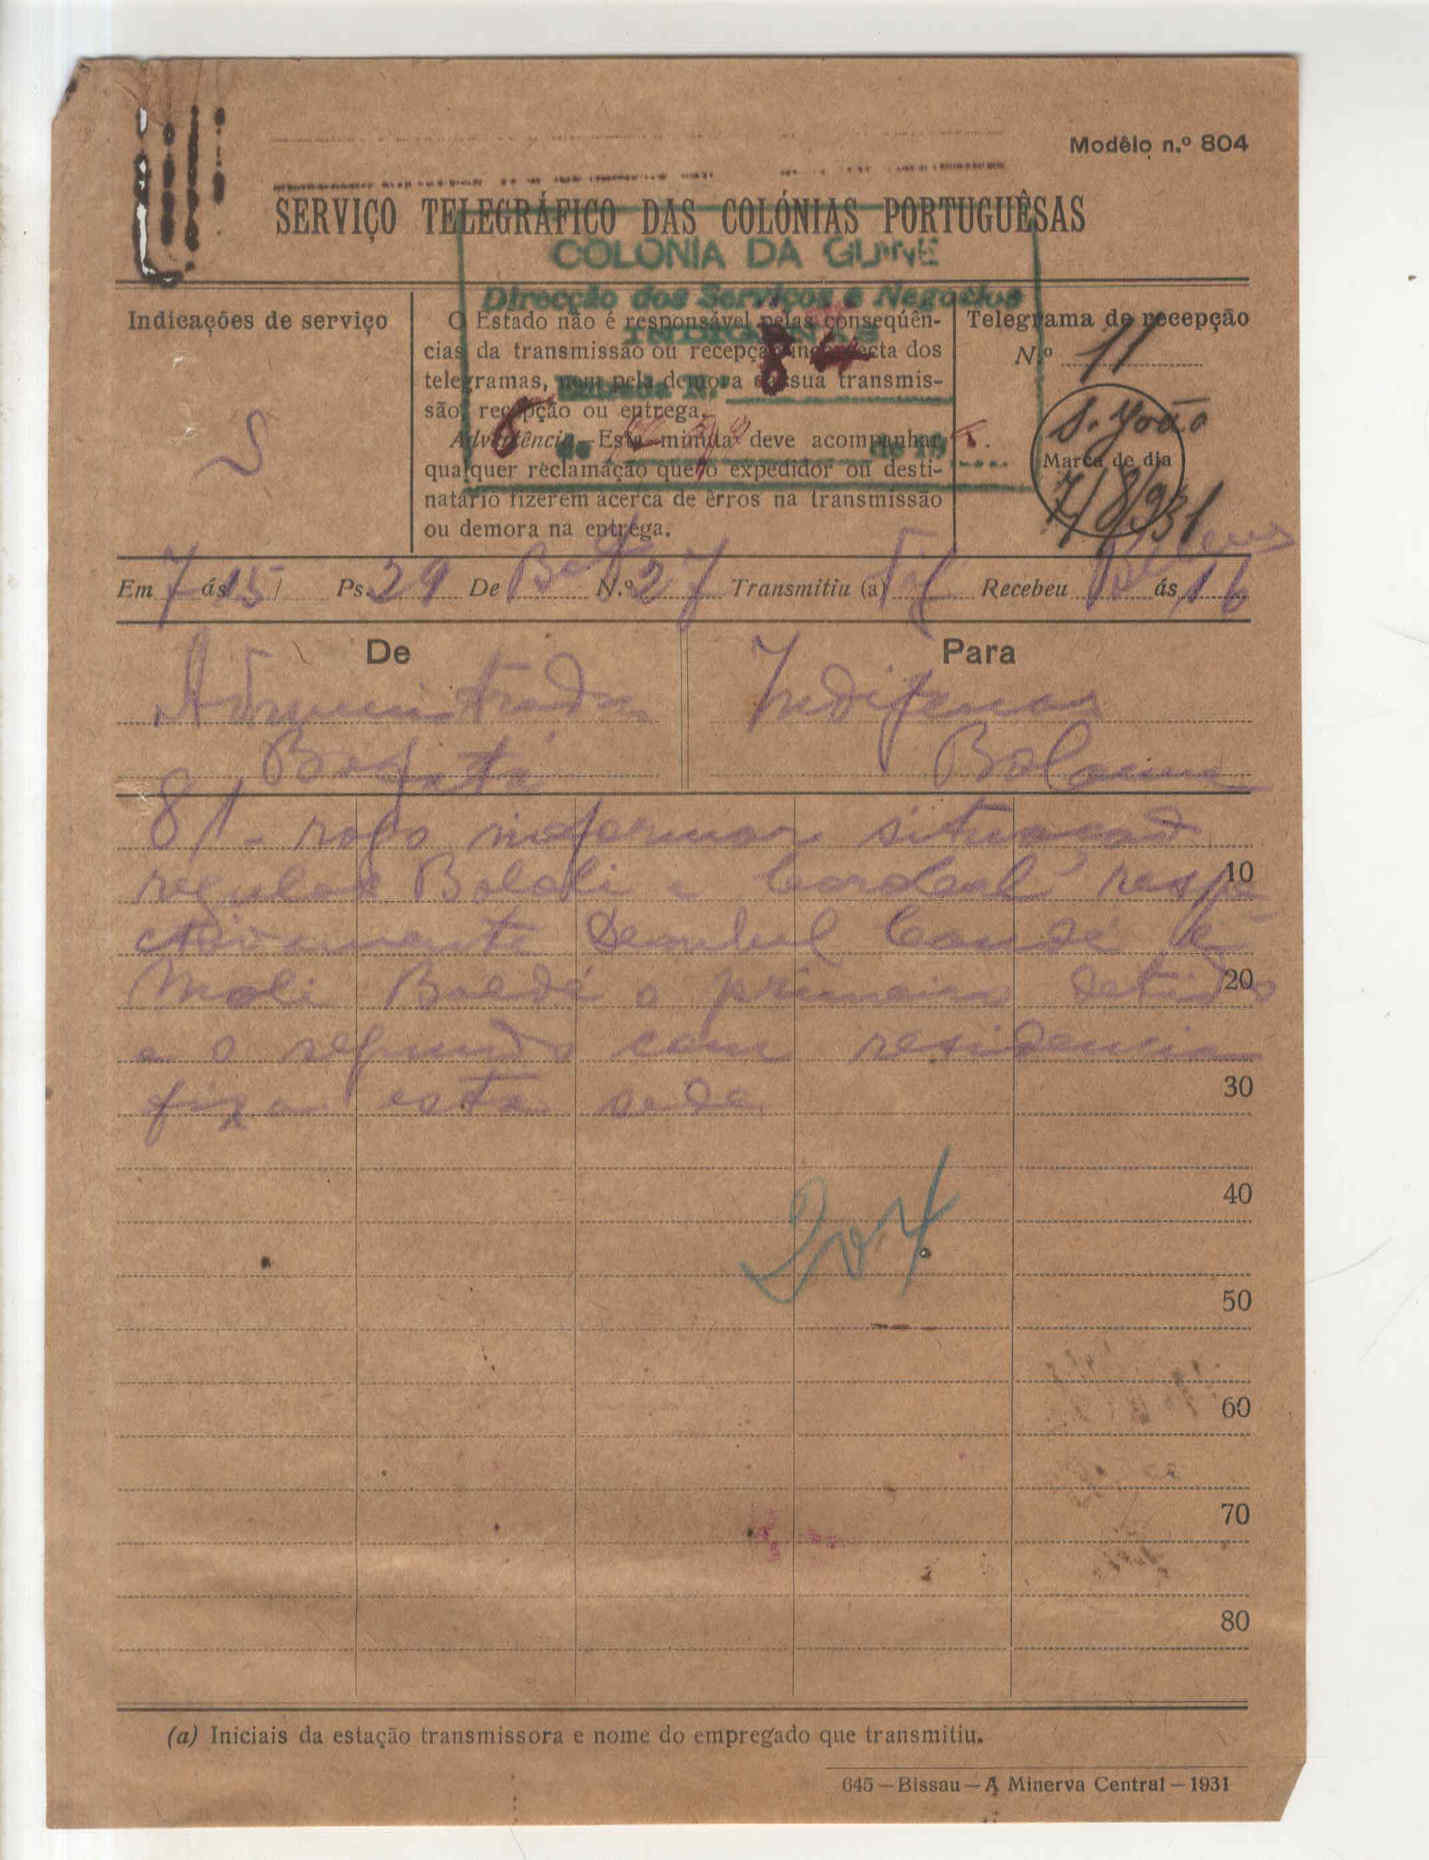 Modêlo n.º 804
SERVIÇO TELEGRÁFICO DAS COLÓNIAS PORTUGUÊSAS
COLONIA DA GUINÉ
Direcção dos Serviços e Negocios
INDIGENAS
Entrada N.º
de de 19
Indicações de serviço
S
O Estado não é responsável pelas conseqüên-
cias da transmissão ou recepção incorrecta dos
telegramas, nem pela demora da sua transmis-
são, recepção ou entrega.
Advertência—Esta minuta deve acompanhar
qualquer reclamação que o expedidor ou desti-
natário fizerem àcerca de êrros na transmissão
ou demora na entrega.
Telegrama de recepção
N.º 11
S. João
Marca de dia
7/8/931
Em 7 ás 15 / Ps. 29 De N.º 27 Transmitiu (a) Recebeu ás 16
De
Administrador
Bafatá
Para
Indigenas
Bolama
81 - rogo informar situacao
regulos e respe
ctivamente
o primeiro detido
e o segundo com residencia
fixa esta sede
204
10
20
30
40
50
60
70
80
(a) Iniciais da estação transmissora e nome do empregado que transmitiu.
645—Bissau—A Minerva Central—1931